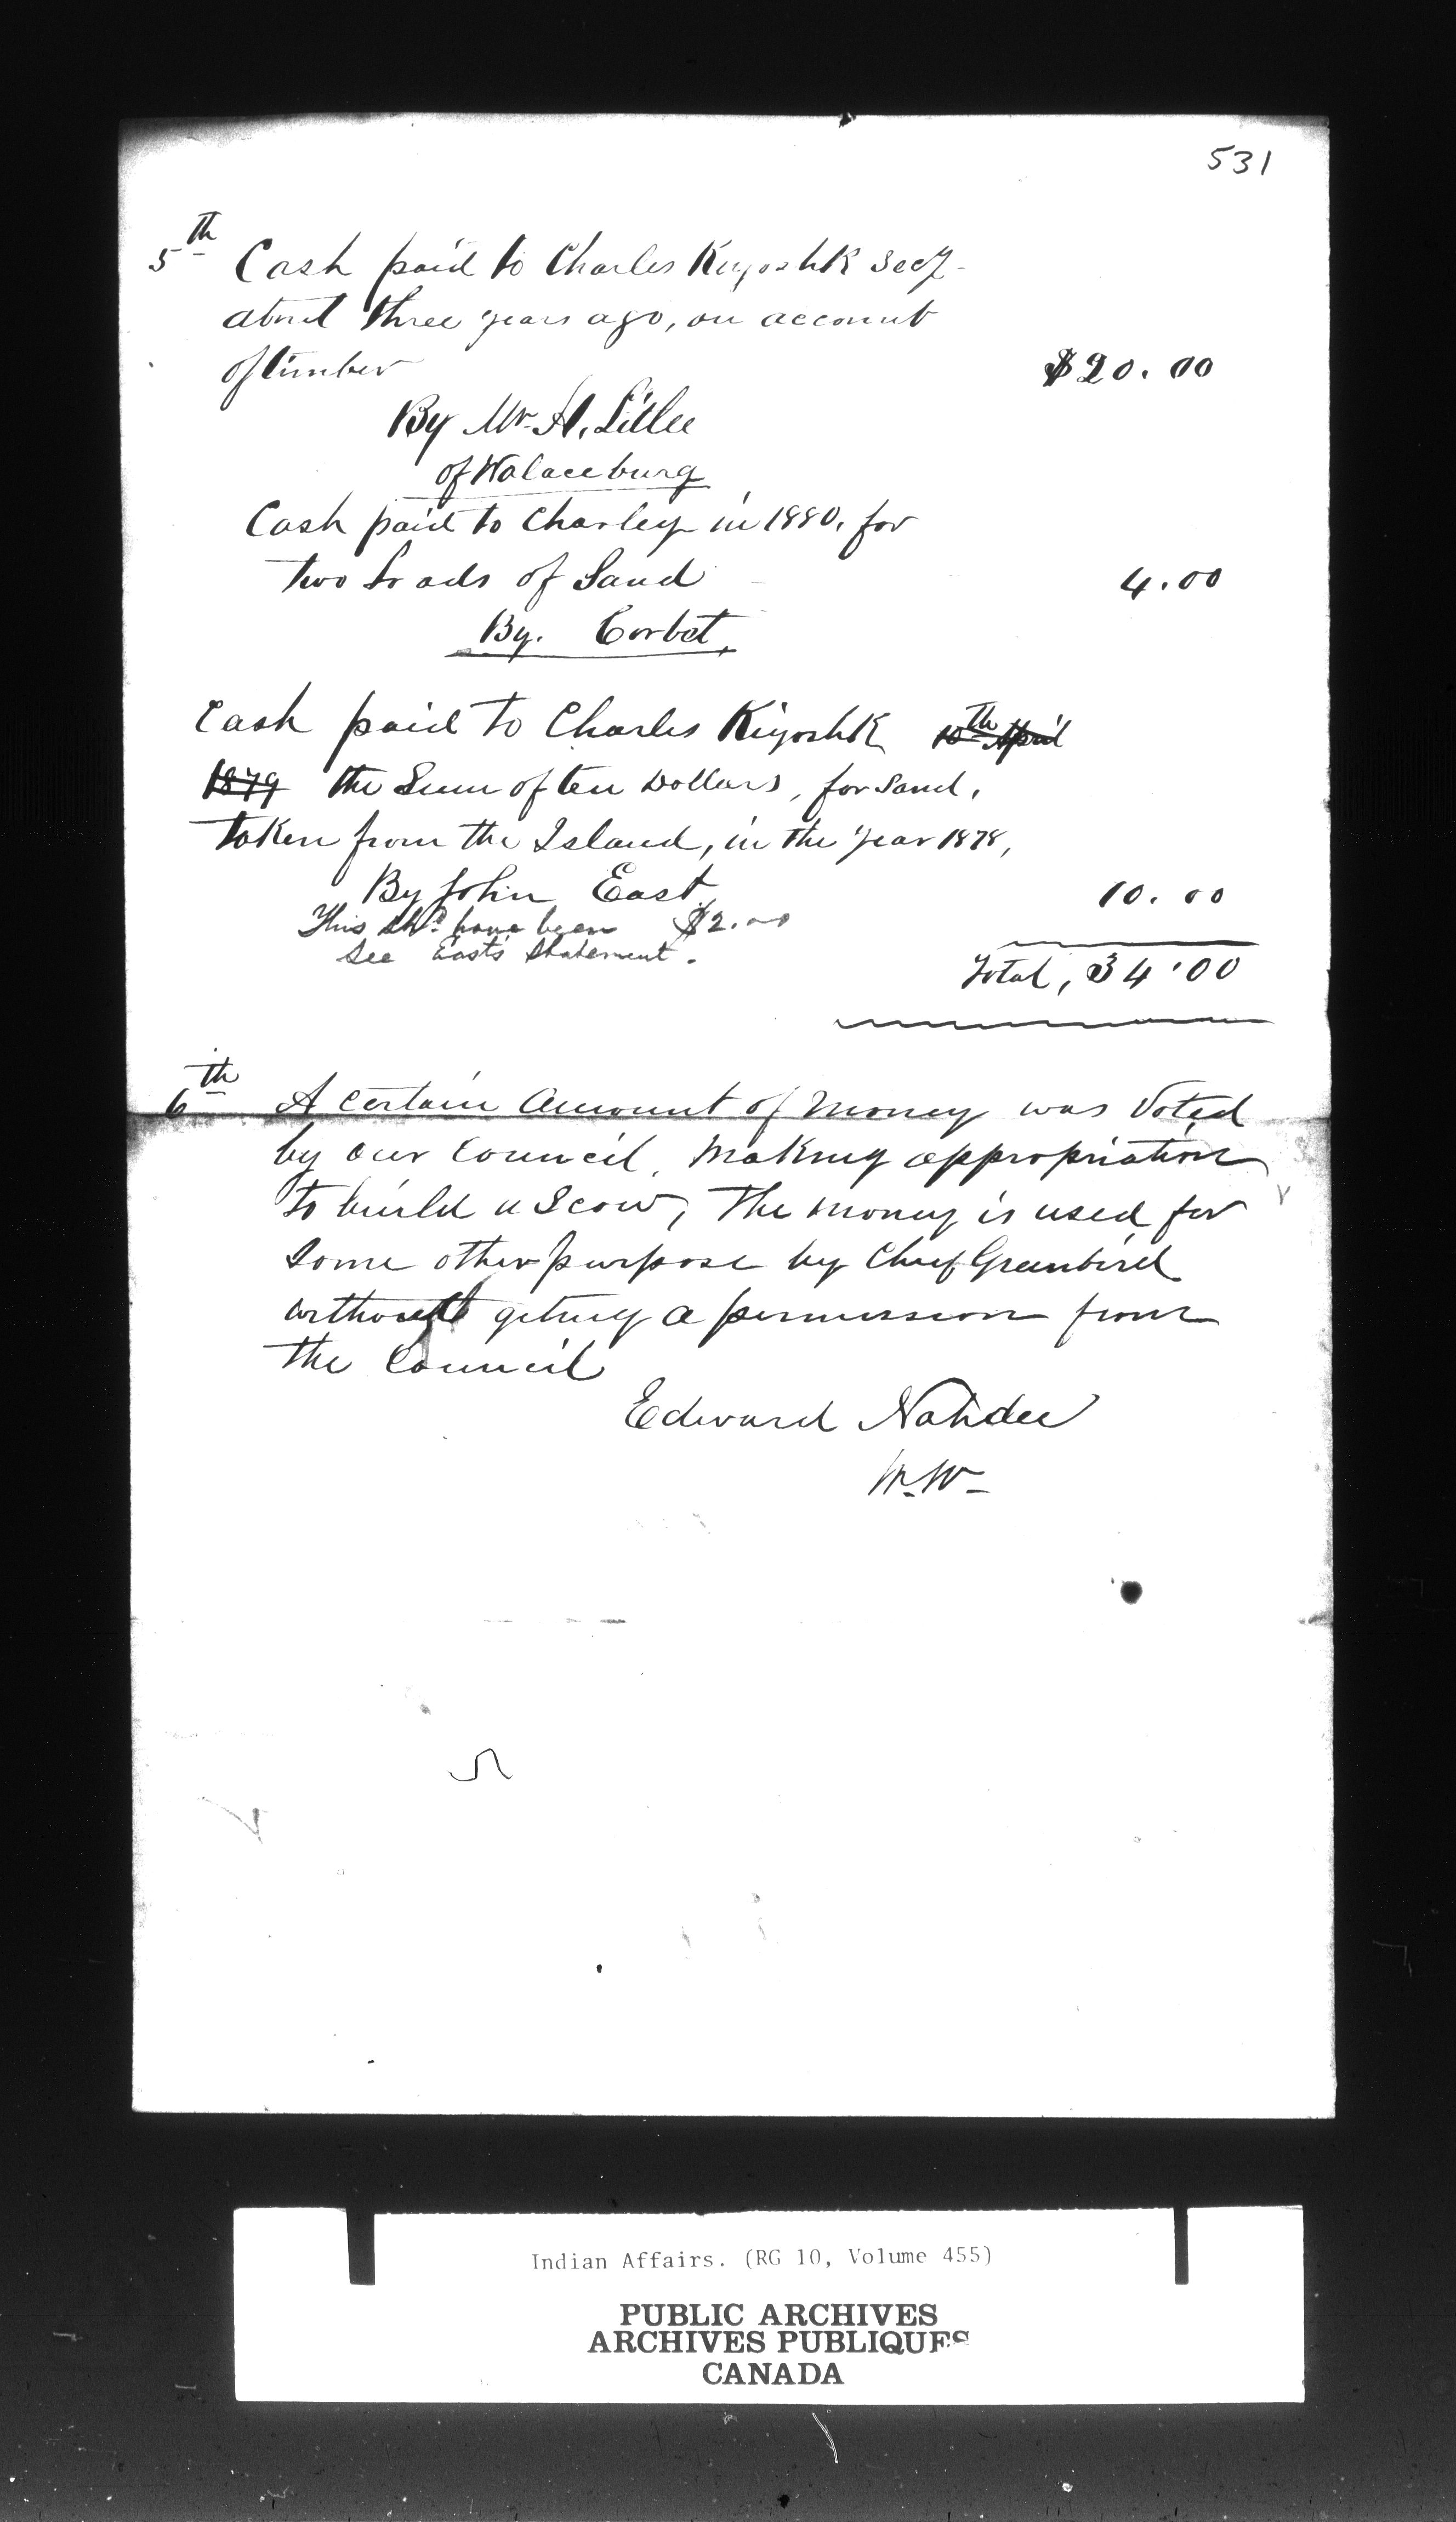 531
5th Cash paid to Charles Kiyoshk Secy-
about three years ago, on account
of timber $20.00
By Mr. H. Litlee
of Walaceburg
Cash paid to Charley in 1880. for
two Loads of Sand 4.00
By. Corbet,
Cash paid to Charles Kiyoshk 10th April
1879 the Sum of ten Dollars, for Sand,
taken from the Island, in the year 1878,
By John East, 10.00
This shd. have been $2.00
See East's Statement.
Total, 34.00
6th A certain Amount of Money was Voted
by our Council, Making appropriation
to build a Scow, The money is used for
Some other purpose by Chief Greenbird
without geting a permission from
the Council
Edward Nahdee
W.W-
Indian Affairs. (RG 10, Volume 455)
PUBLIC ARCHIVES
ARCHIVES PUBLIQUES
CANADA